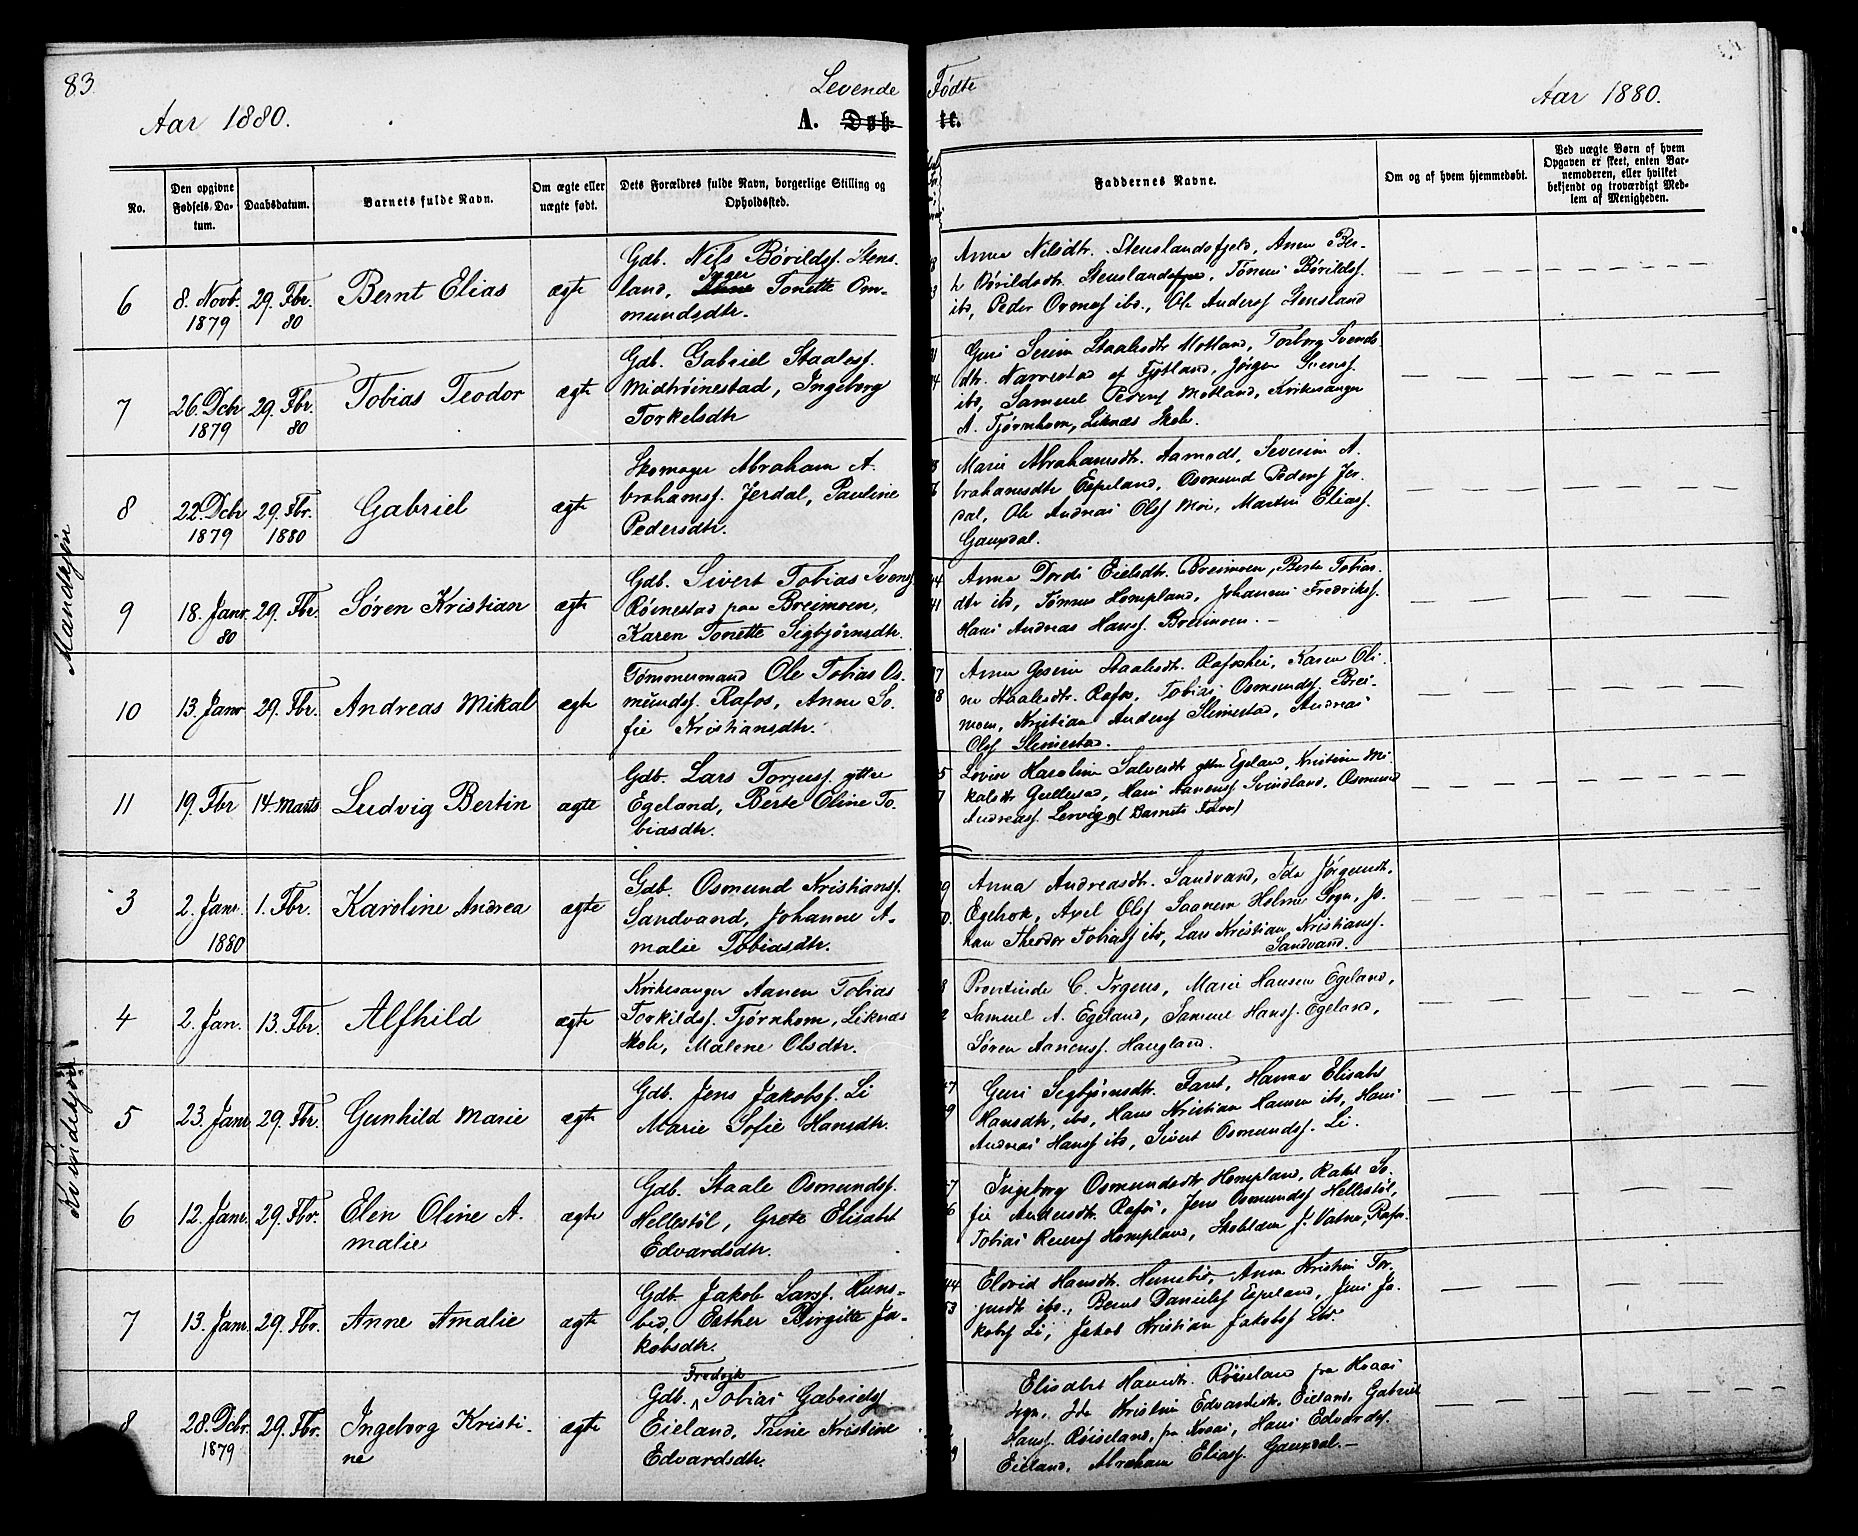 83
Levende Fødte
Aar 1880.
A. Døb-te.
Aar 1880.
No.
Den opgivne Fødsels-Datum.
Daabsdatum.
Barnets fulde Navn.
Om ægte eller uægte født.
Dets Forældres fulde Navn, borgerlige Stilling og Opholdssted.
Faddernes Navne.
Om og af hvem hjemmedøbt.
Ved uægte Børn af hvem Opgaven er skeet, enten Barnemoderen, eller hvilket bekjendt og troværdigt Medlem af Menigheden.
Mandkjøn
6
8. Novb. 1879
29. Fbr. 80
Bernt Elias
ægte
Gdb. Nils Børildsf. Stens-
land, Inger Tonette Om-
mundsdtr.
Anna Nilsdtr. Stenslandsfjeld, Anne Ber-
t Børildsdtr. Stensland, Tønnes Børildsf.
ibd, Peder Ovensf ibd., Ole Andersf Stensland
7
26. Dcbr 1879
29. Fbr. 80
Tobias Teodor
ægte
Gdb. Gabriel Staalesf.
Midtrøinestad, Ingeborg
Torkelsdtr
Guri Serine Staalesdtr Motland, Torborg Svends
dtr. Narvestad af Fjotland, Jørgen Svensf.
ibd, Samuel Pedersf Motland, Kirkesanger
A. Tjørnhom, Liknæs Skole.
8
22. Dcbr 1879
29. Fbr. 1880
Gabriel
ægte
Skomager Abraham A-
brahamsf. Jerdal, Pauline
Pedersdtr.
Marie Abrahamsdtr. Aamodt, Severine A.
brahamsdtr Espeland, Osmund Pedersf Jer-
dal, Ole Andreas Olsf Moi, Martin Eliasf.
Gausdal.
9
18. Janr. 80
29. Fbr.
Søren Kristian
ægte
Gdb. Sivert Tobias Svensf
Røinestad paa Breimoen,
Karen Tonette Sigbjørnsdtr.
Anna Dordi Eielsdtr. Breimoen, Berte Tobias
dtr ibd, Tønnes Hompland, Johannes Fredriksf.
Hans Andreas Hansf. Breimoen. –
10
13. Janr
29. Fbr.
Andreas Mikal
ægte
Tømmermand Ole Tobias Os-
mundsf. Rafos, Anne So-
fie Kristiansdtr.
Anne Gjeserine Staalesdtr. Rafoshei, Karen Oli-
ne Staalesdtr. Rafos, Tobias Osmundsf. Brei-
moen, Kristian Andersf Slimestad, Andreas
Olsf Slimestad.
11
19. Fbr
14. Marts
Ludvig Bertin
ægte
Gdb. Lars Torjusf. ytre
Egeland, Berte Oline To-
biasdtr.
Lovise Karoline Salvesdtr ytre Egeland, Kristine Mi-
kalsdtr Gullestad, Hans Aanensf Svindland, Osmund
Andreasf. Lervig og (Barnets Fader)
Kvindekjøn
3
2. Janr. 1880
1. Fbr.
Karoline Andrea
ægte
Gdb. Osmund Kristiansf.
Sandvand, Johanne A-
malie Tobiasdtr.
Anna Andreasdtr. Sandvand, Ida Jørgensdtr,
Egebok, Axel Olsf Saanem Holme Sogn, Jo-
han Theodor Tobiasf ibd, Lars Kristian Kristiansf.
Sandvand.
4
2. Jan.
13. Fbr.
Alfhild
ægte
Kirkesanger Aanen Tobias
Torkildsf. Tjørnhom, Liknæs
Skole, Malene Olsdtr.
C. Irgens, Marie Hansen Egeland,
Samuel A. Egeland, Samuel Hansf. Egeland,
Søren Aanensf. Haugland.
5
23. Janr.
29. Fbr.
Gunhild Marie
ægte
Gdb. Jens Jakobsf. Li
Marie Sofie Hansdtr.
Guri Segbjørnsdtr. Faret, Hanna Elisabet
Hansdtr, ibd, Hans Kristian Hansen ibd, Hans
Andreas Hansf ibd, Sivert Osmundsf. Li.
6
12. Janr.
29. Fbr.
Elen Oline A-
malie
ægte
Gdb. Staale Osmundsf.
Hellestøl, Grete Elisabet
Edvardsdtr.
Ingeborg Osmundsdtr Hompland, Rakel So-
fie Andersdtr. Rafos, Jens Osmundsf Hellestøl,
Tobias Reiersf Hompland, J. Vatne, Rafos.
7
13. Janr.
29. Fbr.
Anne Amalie
ægte
Gdb. Jakob Larsf. Huns-
bed, Esther Birgitte Ja-
kobsdtr.
Elevid Hansdtr. Hunsbed, Anne Kristine Tor-
jusdtr ibd., Bernt Danielsf Espeland, Jens Ja-
kobsf Li, Jakob Kristian Jakobsf ibd.
8
28. Dcbr. 1879
29. Fbr.
Ingeborg Kristi-
ne
ægte
Gdb. Fredrik Tobias Gabrielsf
Eieland, Trine Kristine
Edvardsdtr.
Elisabet Hansdtr. Røiseland fra Hvaas
Sogn, Ida Kristine Edvardsdtr. Eieland, Gabriel
Hansf. Røiseland, fra Kvaas, Hans Edvardsf.
Eieland, Abraham Eliasf. Gausdal. –